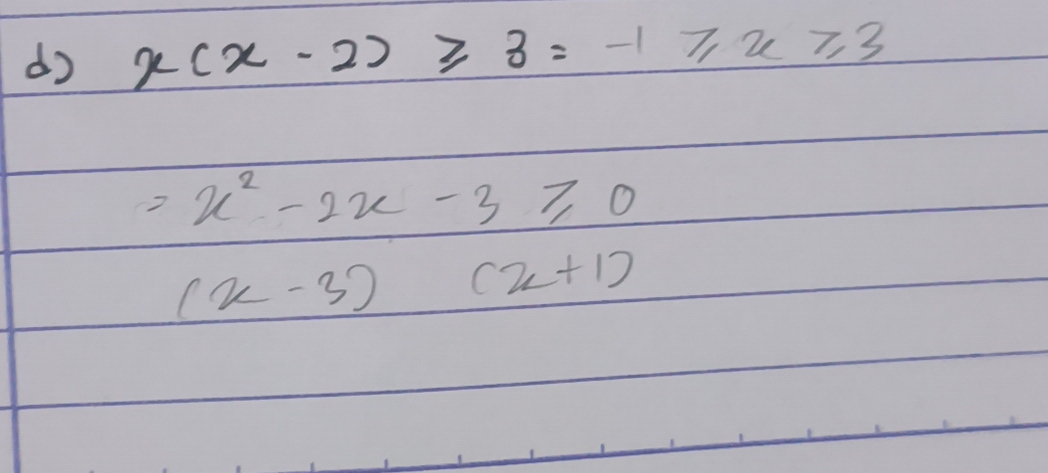 d) x(x - 2) ≥ 3 = -1 ≥ x ≥ 3
= x² - 2x - 3 ≥ 0
(x - 3) (x + 1)